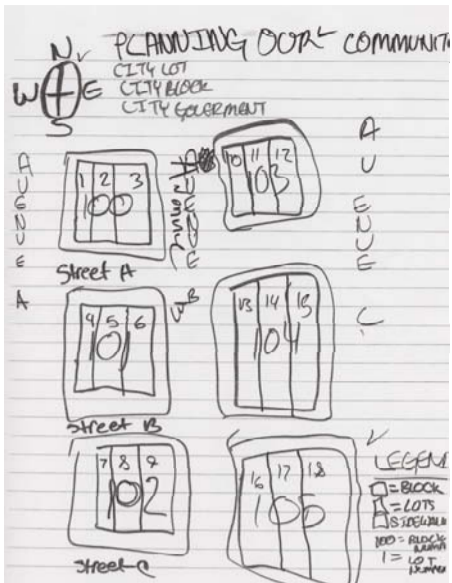 PLANNING OUR COMMUNIT
N
W E
S
CITY LOT
CITY BLOCK
CITY GOVERMENT
AVENUE A
1 2 3
100
Street A
4 5 6
101
Street B
7 8 9
102
Street C
AVENUE B
10 11 12
103
13 14 15
104
16 17 18
105
AVENUE C
LEGEND
=BLOCK
=LOTS
SIDEWALK
100=BLOCK
1= LOT